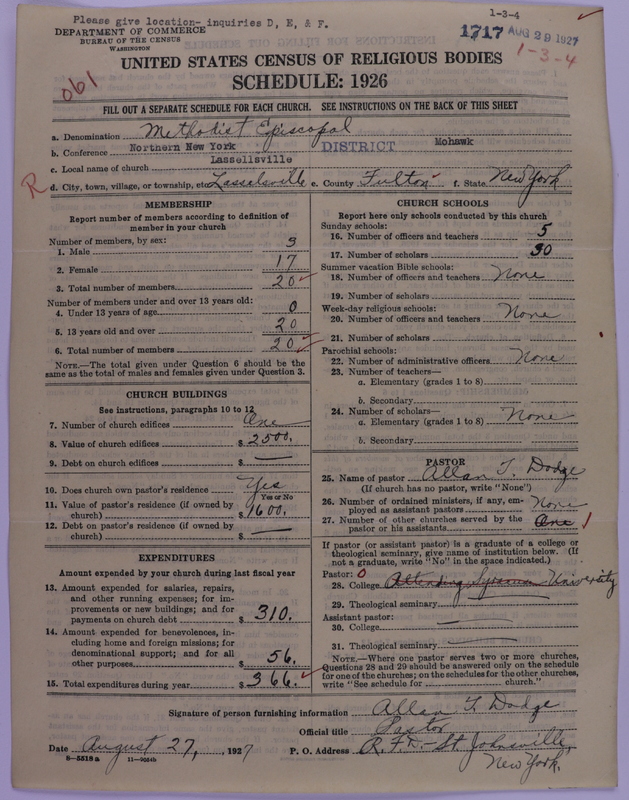 Please give location- inquiries D, E, & F.
1-3-4
DEPARTMENT OF COMMERCE
BUREAU OF THE CENSUS
WASHINGTON
1717 AUG 29 1927
1-3-4
061
UNITED STATES CENSUS OF RELIGIOUS BODIES
SCHEDULE: 1926
FILL OUT A SEPARATE SCHEDULE FOR EACH CHURCH. SEE INSTRUCTIONS ON THE BACK OF THIS SHEET
a. Denomination Methodist Episcopal
b. Conference Northern New York DISTRICT Mohawk
c. Local name of church Lassellsville
R d. City, town, village, or township, etc. Lassellsville e. County Fulton f. State New York
MEMBERSHIP
Report number of members according to definition of
member in your church
Number of members, by sex:
1. Male 3
2. Female 17
3. Total number of members 20
Number of members under and over 13 years old:
4. Under 13 years of age 0
5. 13 years old and over 20
6. Total number of members 20
NOTE.—The total given under Question 6 should be the
same as the total of males and females given under Question 3.
CHURCH BUILDINGS
See instructions, paragraphs 10 to 12
7. Number of church edifices One
8. Value of church edifices $ 2500.
9. Debt on church edifices $ —
10. Does church own pastor's residence Yes
Yes or No
11. Value of pastor's residence (if owned by
church) $ 1600.
12. Debt on pastor's residence (if owned by
church) $ —
EXPENDITURES
Amount expended by your church during last fiscal year
13. Amount expended for salaries, repairs,
and other running expenses; for im-
provements or new buildings; and for
payments on church debt $ 310.
14. Amount expended for benevolences, in-
cluding home and foreign missions; for
denominational support; and for all
other purposes $ 56.
15. Total expenditures during year $ 366.
CHURCH SCHOOLS
Report here only schools conducted by this church
Sunday schools:
16. Number of officers and teachers 5
17. Number of scholars 30
Summer vacation Bible schools:
18. Number of officers and teachers None
19. Number of scholars
Week-day religious schools:
20. Number of officers and teachers None
21. Number of scholars
Parochial schools:
22. Number of administrative officers None
23. Number of teachers—
a. Elementary (grades 1 to 8)
b. Secondary
24. Number of scholars—
a. Elementary (grades 1 to 8) None
b. Secondary
PASTOR
25. Name of pastor Allan T. Dodge
(If church has no pastor, write "None")
26. Number of ordained ministers, if any, em-
ployed as assistant pastors None
27. Number of other churches served by the
pastor or his assistants One 1
If pastor (or assistant pastor) is a graduate of a college or
theological seminary, give name of institution below. (If
not a graduate, write "No" in the space indicated.)
Pastor: 0
28. College Attending Syracuse University
29. Theological seminary —
Assistant pastor:
30. College —
31. Theological seminary —
NOTE.—Where one pastor serves two or more churches,
Questions 28 and 29 should be answered only on the schedule
for one of the churches; on the schedules for the other churches,
write "See schedule for church."
Signature of person furnishing information Allan T. Dodge
Official title Pastor
Date August 27, 1927 P. O. Address R.F.D.- St. Johnsville,
New York.
8-5518 a 11-9054b